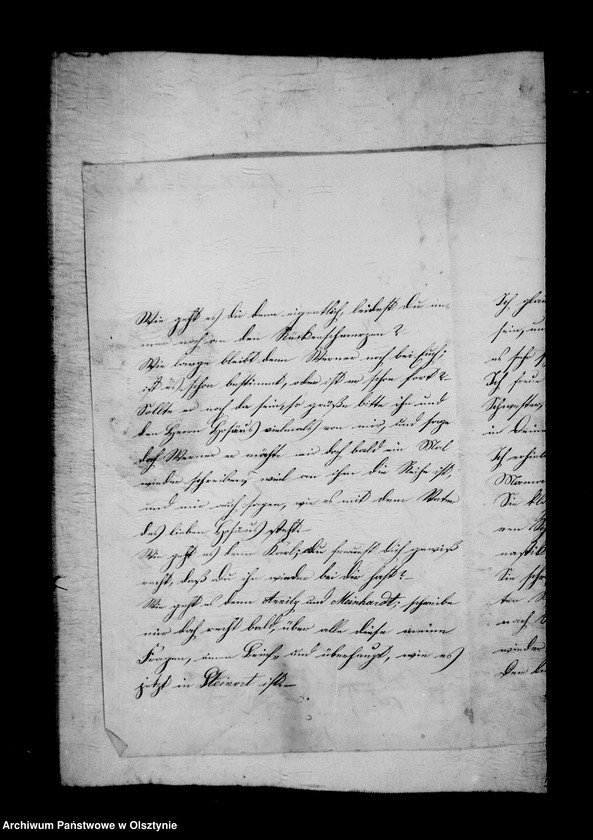 Wie geht es Dir denn eigentlich, leidest Du im-
mer noch an den Rückenschmerzen?
Wie lange bleibt denn Werner noch bei Euch;
ist es schon bestimmt, oder ist er schon fort?
Sollte er noch da sein, so grüße bitte ihn und
den Herrn vielmals von mir, und sage
doch Werner er möchte mir doch bald ein Mal
wieder schreiben, weil an ihm die Reihe ist,
und mir auch sagen, wie es mit dem Vater
des lieben steht.
Wie geht es dem Karl; Du freuest Dich gewiß
recht, daß Du ihn wieder bei Dir hast?
Wie geht es denn und Meinhardt; schreibe
mir doch recht bald, über alle diese meine
Fragen, einen Brief, und überhaupt, wie es
jetzt in Steinort ist.
Ich
sein,
es sehr
Ich
Schwester,
in Deine
Ich
Sie
Sie
nach
wieder
Archiwum Państwowe w Olsztynie